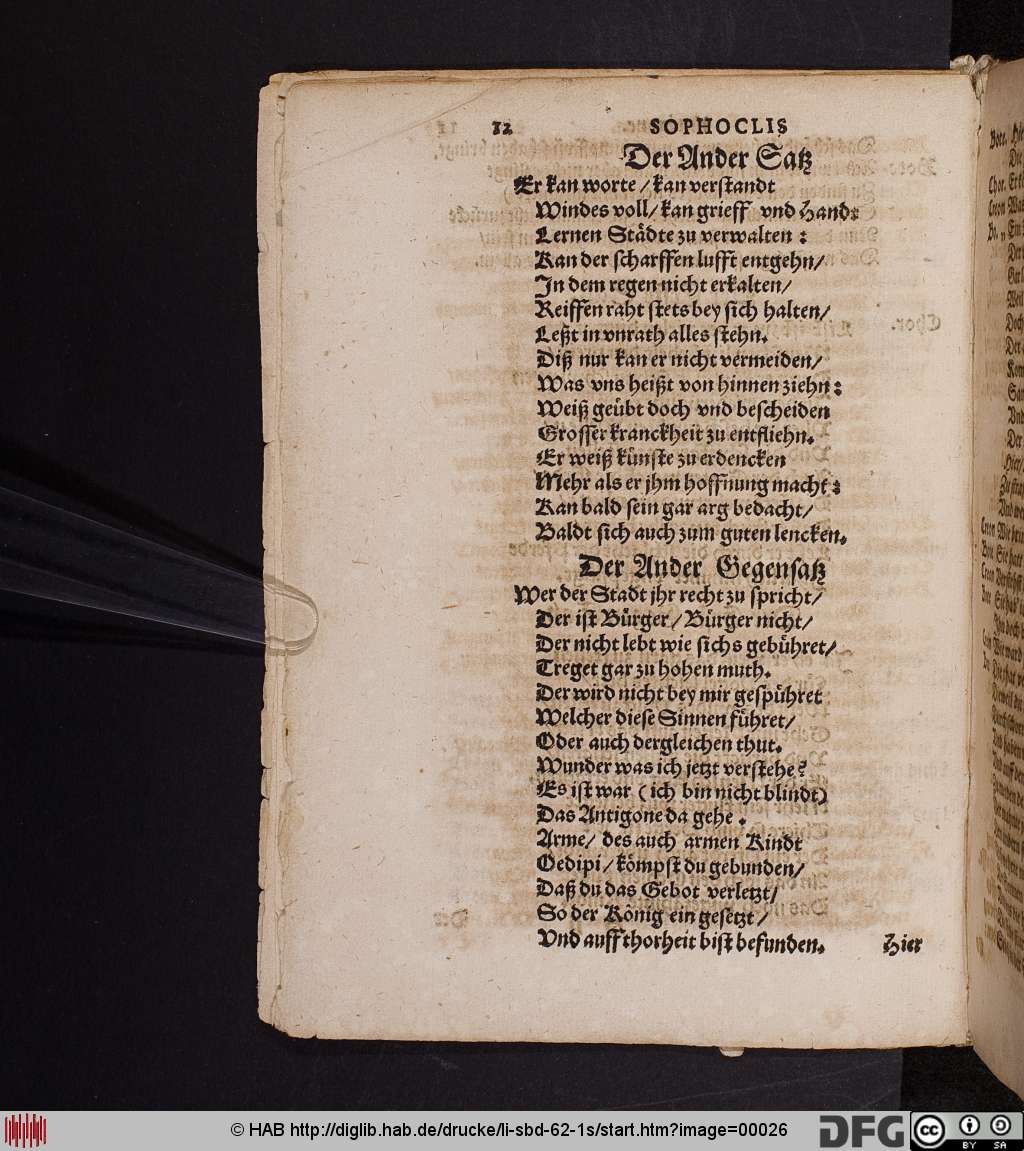 12 SOPHOCLIS
Der Ander Satz
Er kan worte / kan verstandt
Windes voll / kan grieff vnd Hand:
Lernen Städte zu verwalten :
Kan der scharffen lufft entgehn /
In dem regen nicht erkalten /
Reiffen raht stets bey sich halten /
Leßt in vnrath alles stehn.
Diß nur kan er nicht vermeiden /
Was vns heißt von hinnen ziehn :
Weiß geübt doch vnd bescheiden
Grosser kranckheit zu entfliehn.
Er weiß künste zu erdencken
Mehr als er jhm hoffnung macht :
Kan bald sein gar arg bedacht /
Baldt sich auch zum guten lencken.
Der Ander Gegensatz
Wer der Stadt jhr recht zu spricht /
Der ist Bürger / Bürger nicht /
Der nicht lebt wie sichs gebühret /
Treget gar zu hohen muth.
Der wird nicht bey mir gespühret
Welcher diese Sinnen führet /
Oder auch dergleichen thut.
Wunder was ich jetzt verstehe ?
Es ist war ( ich bin nicht blindt )
Das Antigone da gehe .
Arme / des auch armen Kindt
Oedipi / kömpst du gebunden /
Daß du das Gebot verletzt /
So der König ein gesetzt /
Vnd auff thorheit bist befunden.
Hier
© HAB http://diglib.hab.de/drucke/li-sbd-62-1s/start.htm?image=00026
DFG
cc BY SA